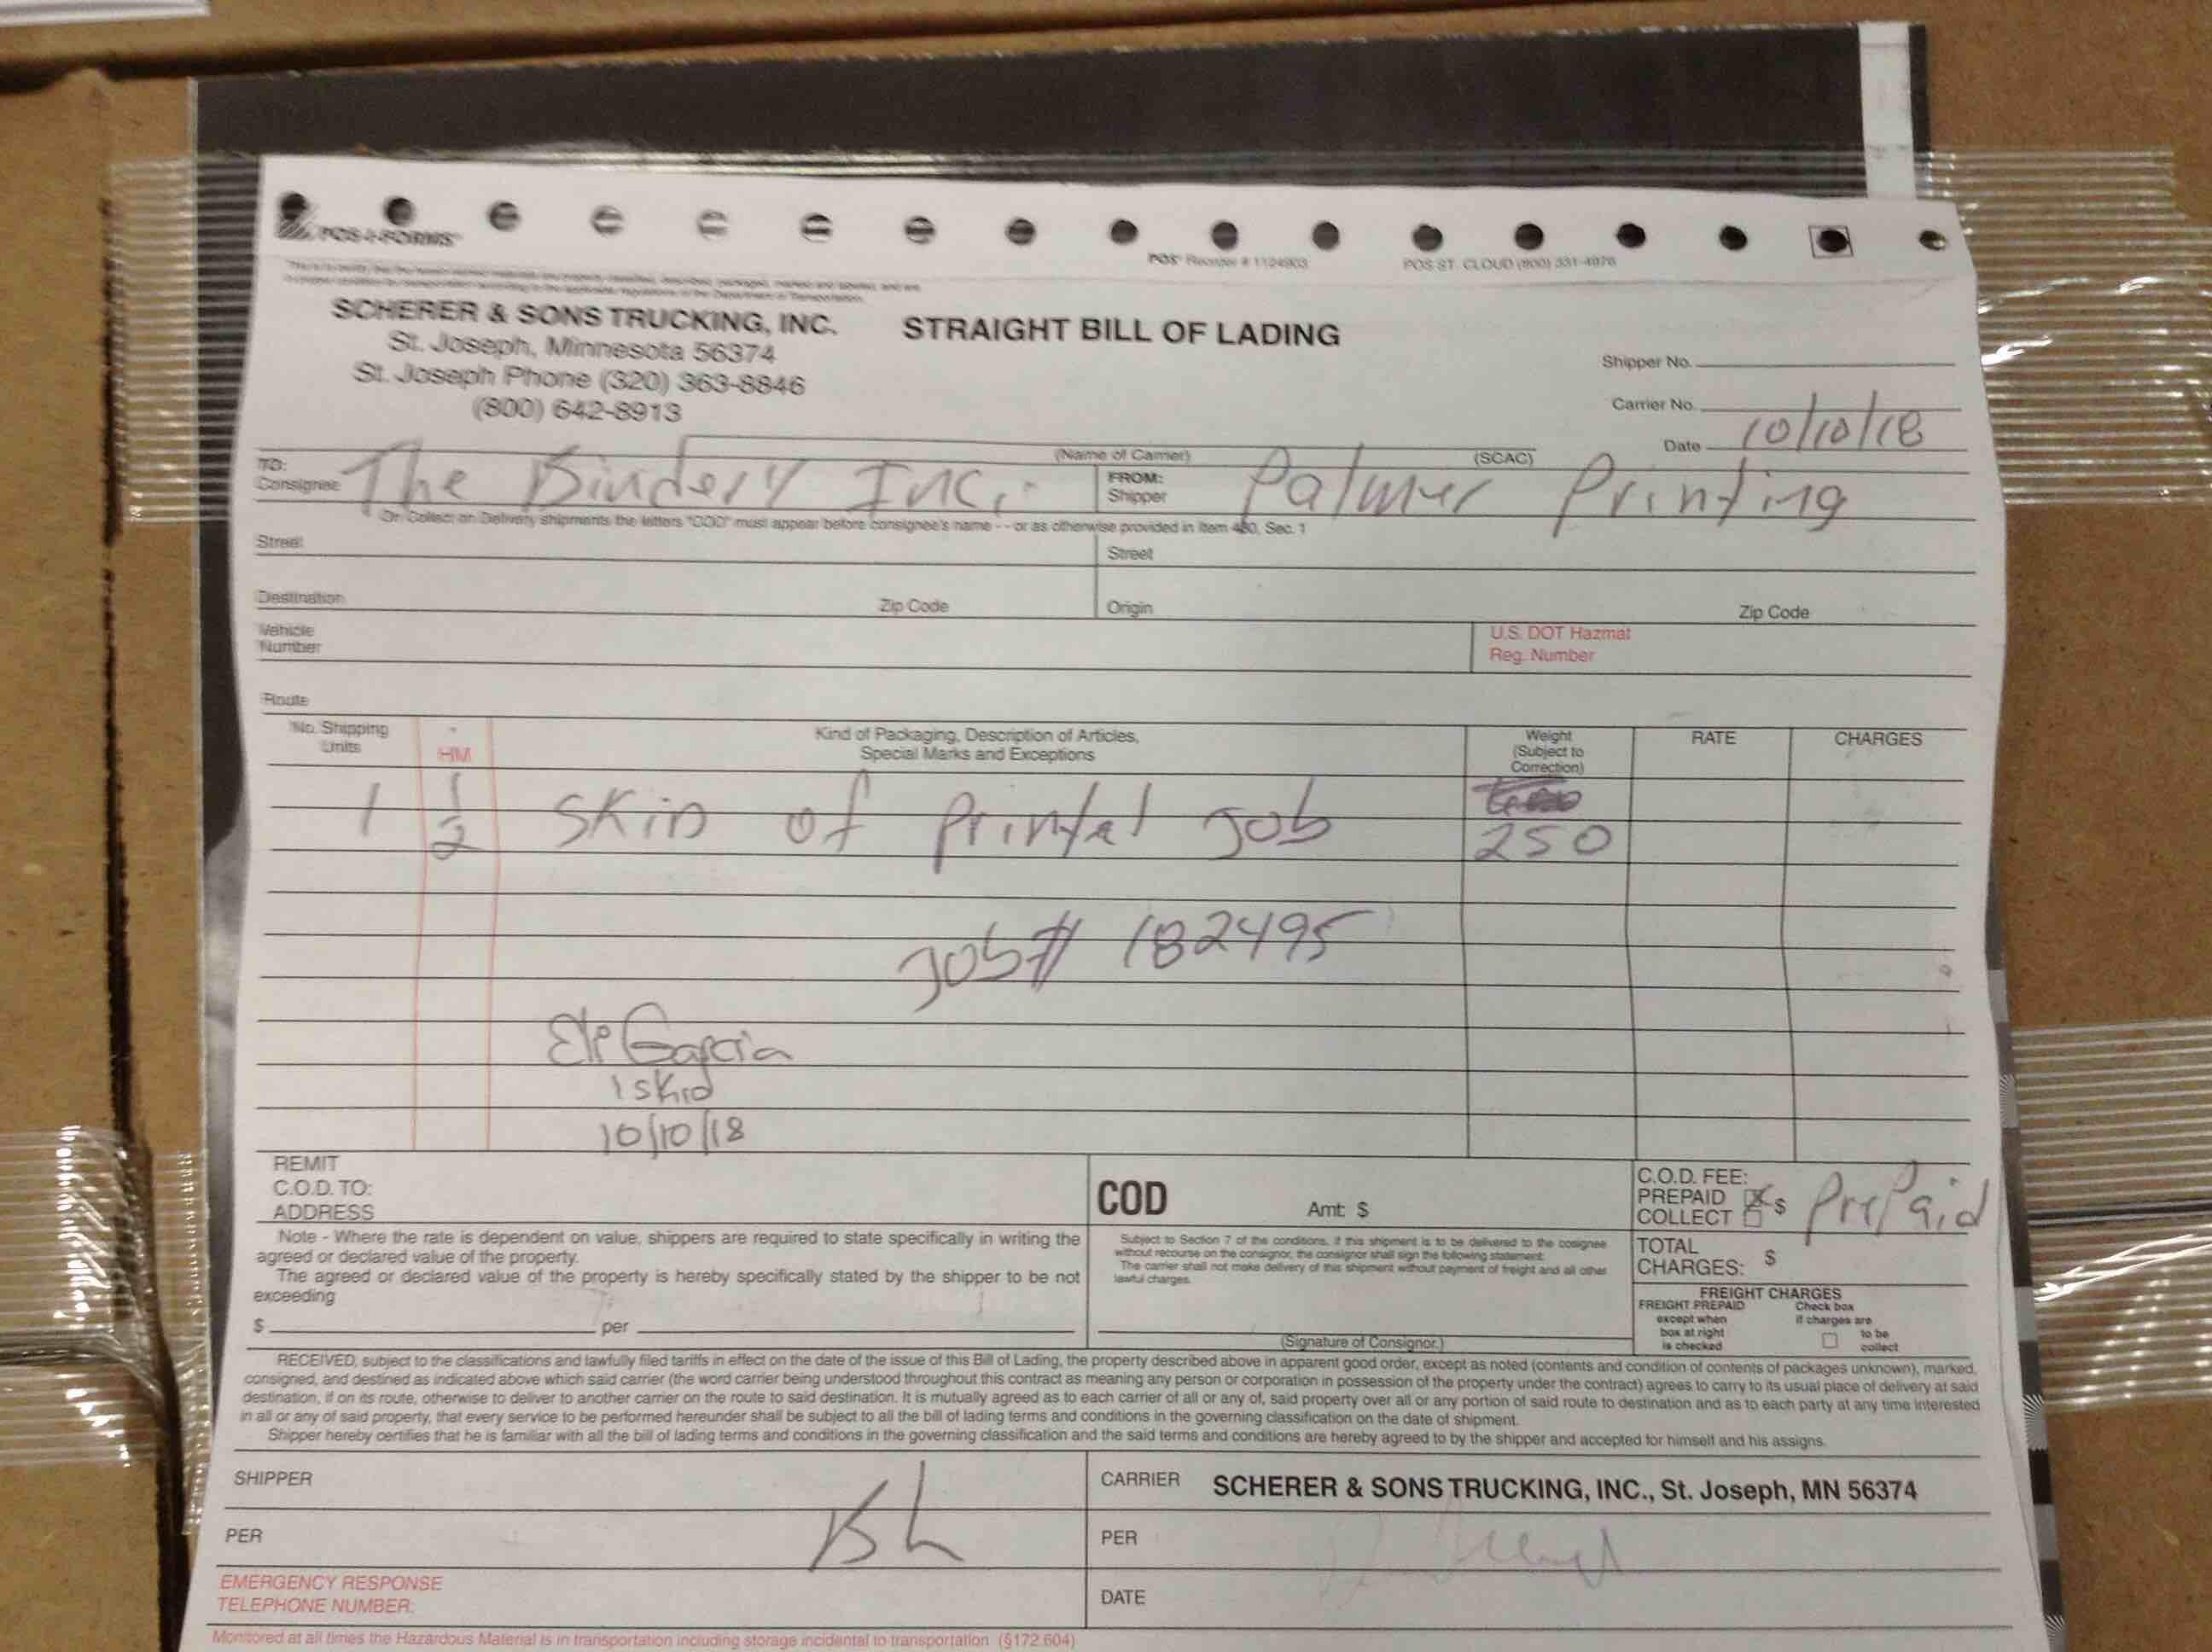 POS-I-FORMS
POS® Reorder # 1124903 POS ST. CLOUD (800) 331-4976
SCHERER & SONS TRUCKING, INC.
STRAIGHT BILL OF LADING
St. Joseph, Minnesota 56374
St. Joseph Phone (320) 363-8846
(800) 642-8913
Shipper No.
Carrier No.
Date 10/10/18
(Name of Carrier) (SCAC)
TO: Consignee The Bindery Inc.
FROM: Shipper Palmer Printing
On Collect on Delivery shipments the letters "COD" must appear before consignee's name - - or as otherwise provided in Item 430, Sec. 1
Street Street
Destination Zip Code Origin Zip Code
Vehicle Number
U.S. DOT Hazmat
Reg. Number
Route
No. Shipping Units
* HM
Kind of Packaging, Description of Articles,
Special Marks and Exceptions
Weight (Subject to Correction)
RATE
CHARGES
1 1/2 Skid of Printed Job 250
Job# 182495
Garcia
1 Skid
10/10/18
REMIT
C.O.D. TO:
ADDRESS
COD Amt $
C.O.D. FEE:
PREPAID X $ PrePaid
COLLECT
Note - Where the rate is dependent on value, shippers are required to state specifically in writing the
agreed or declared value of the property.
The agreed or declared value of the property is hereby specifically stated by the shipper to be not
exceeding
$ per
Subject to Section 7 of the conditions, if this shipment is to be delivered to the cosignee
without recourse on the consignor, the consignor shall sign the following statement:
The carrier shall not make delivery of this shipment without payment of freight and all other
lawful charges.
(Signature of Consignor.)
TOTAL
CHARGES: $
FREIGHT CHARGES
FREIGHT PREPAID
except when
box at right
is checked
Check box
if charges are
to be
collect
RECEIVED, subject to the classifications and lawfully filed tariffs in effect on the date of the issue of this Bill of Lading, the property described above in apparent good order, except as noted (contents and condition of contents of packages unknown), marked,
consigned, and destined as indicated above which said carrier (the word carrier being understood throughout this contract as meaning any person or corporation in possession of the property under the contract) agrees to carry to its usual place of delivery at said
destination, if on its route, otherwise to deliver to another carrier on the route to said destination. It is mutually agreed as to each carrier of all or any of, said property over all or any portion of said route to destination and as to each party at any time interested
in all or any of said property, that every service to be performed hereunder shall be subject to all the bill of lading terms and conditions in the governing classification on the date of shipment.
Shipper hereby certifies that he is familiar with all the bill of lading terms and conditions in the governing classification and the said terms and conditions are hereby agreed to by the shipper and accepted for himself and his assigns.
SHIPPER
CARRIER SCHERER & SONS TRUCKING, INC., St. Joseph, MN 56374
PER
PER
EMERGENCY RESPONSE
TELEPHONE NUMBER:
DATE
Monitored at all times the Hazardous Material is in transportation including storage incidental to transportation (§172.604)